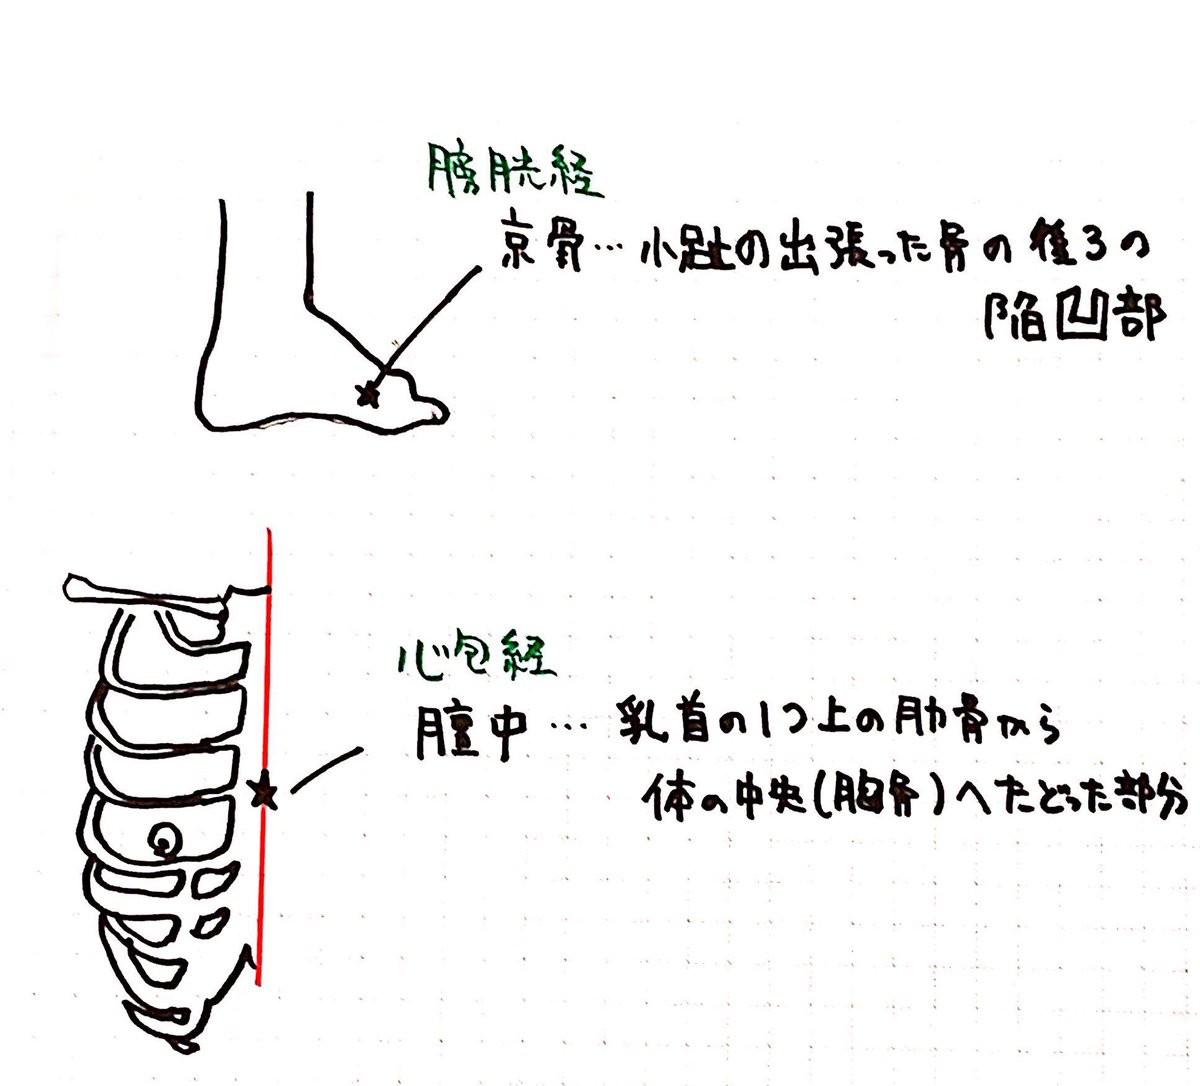 膀胱経
京骨…小趾の出張った骨の後ろの
陥凹部
心包経
膻中…乳首の1つ上の肋骨から
体の中央(胸骨)へたどった部分